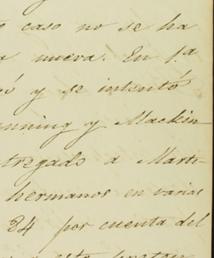 caso no se ha
nueva. En 1.a
y se intentó
nning y Mackin
tregado a Marti
hermanos en varias
84 por cuenta del